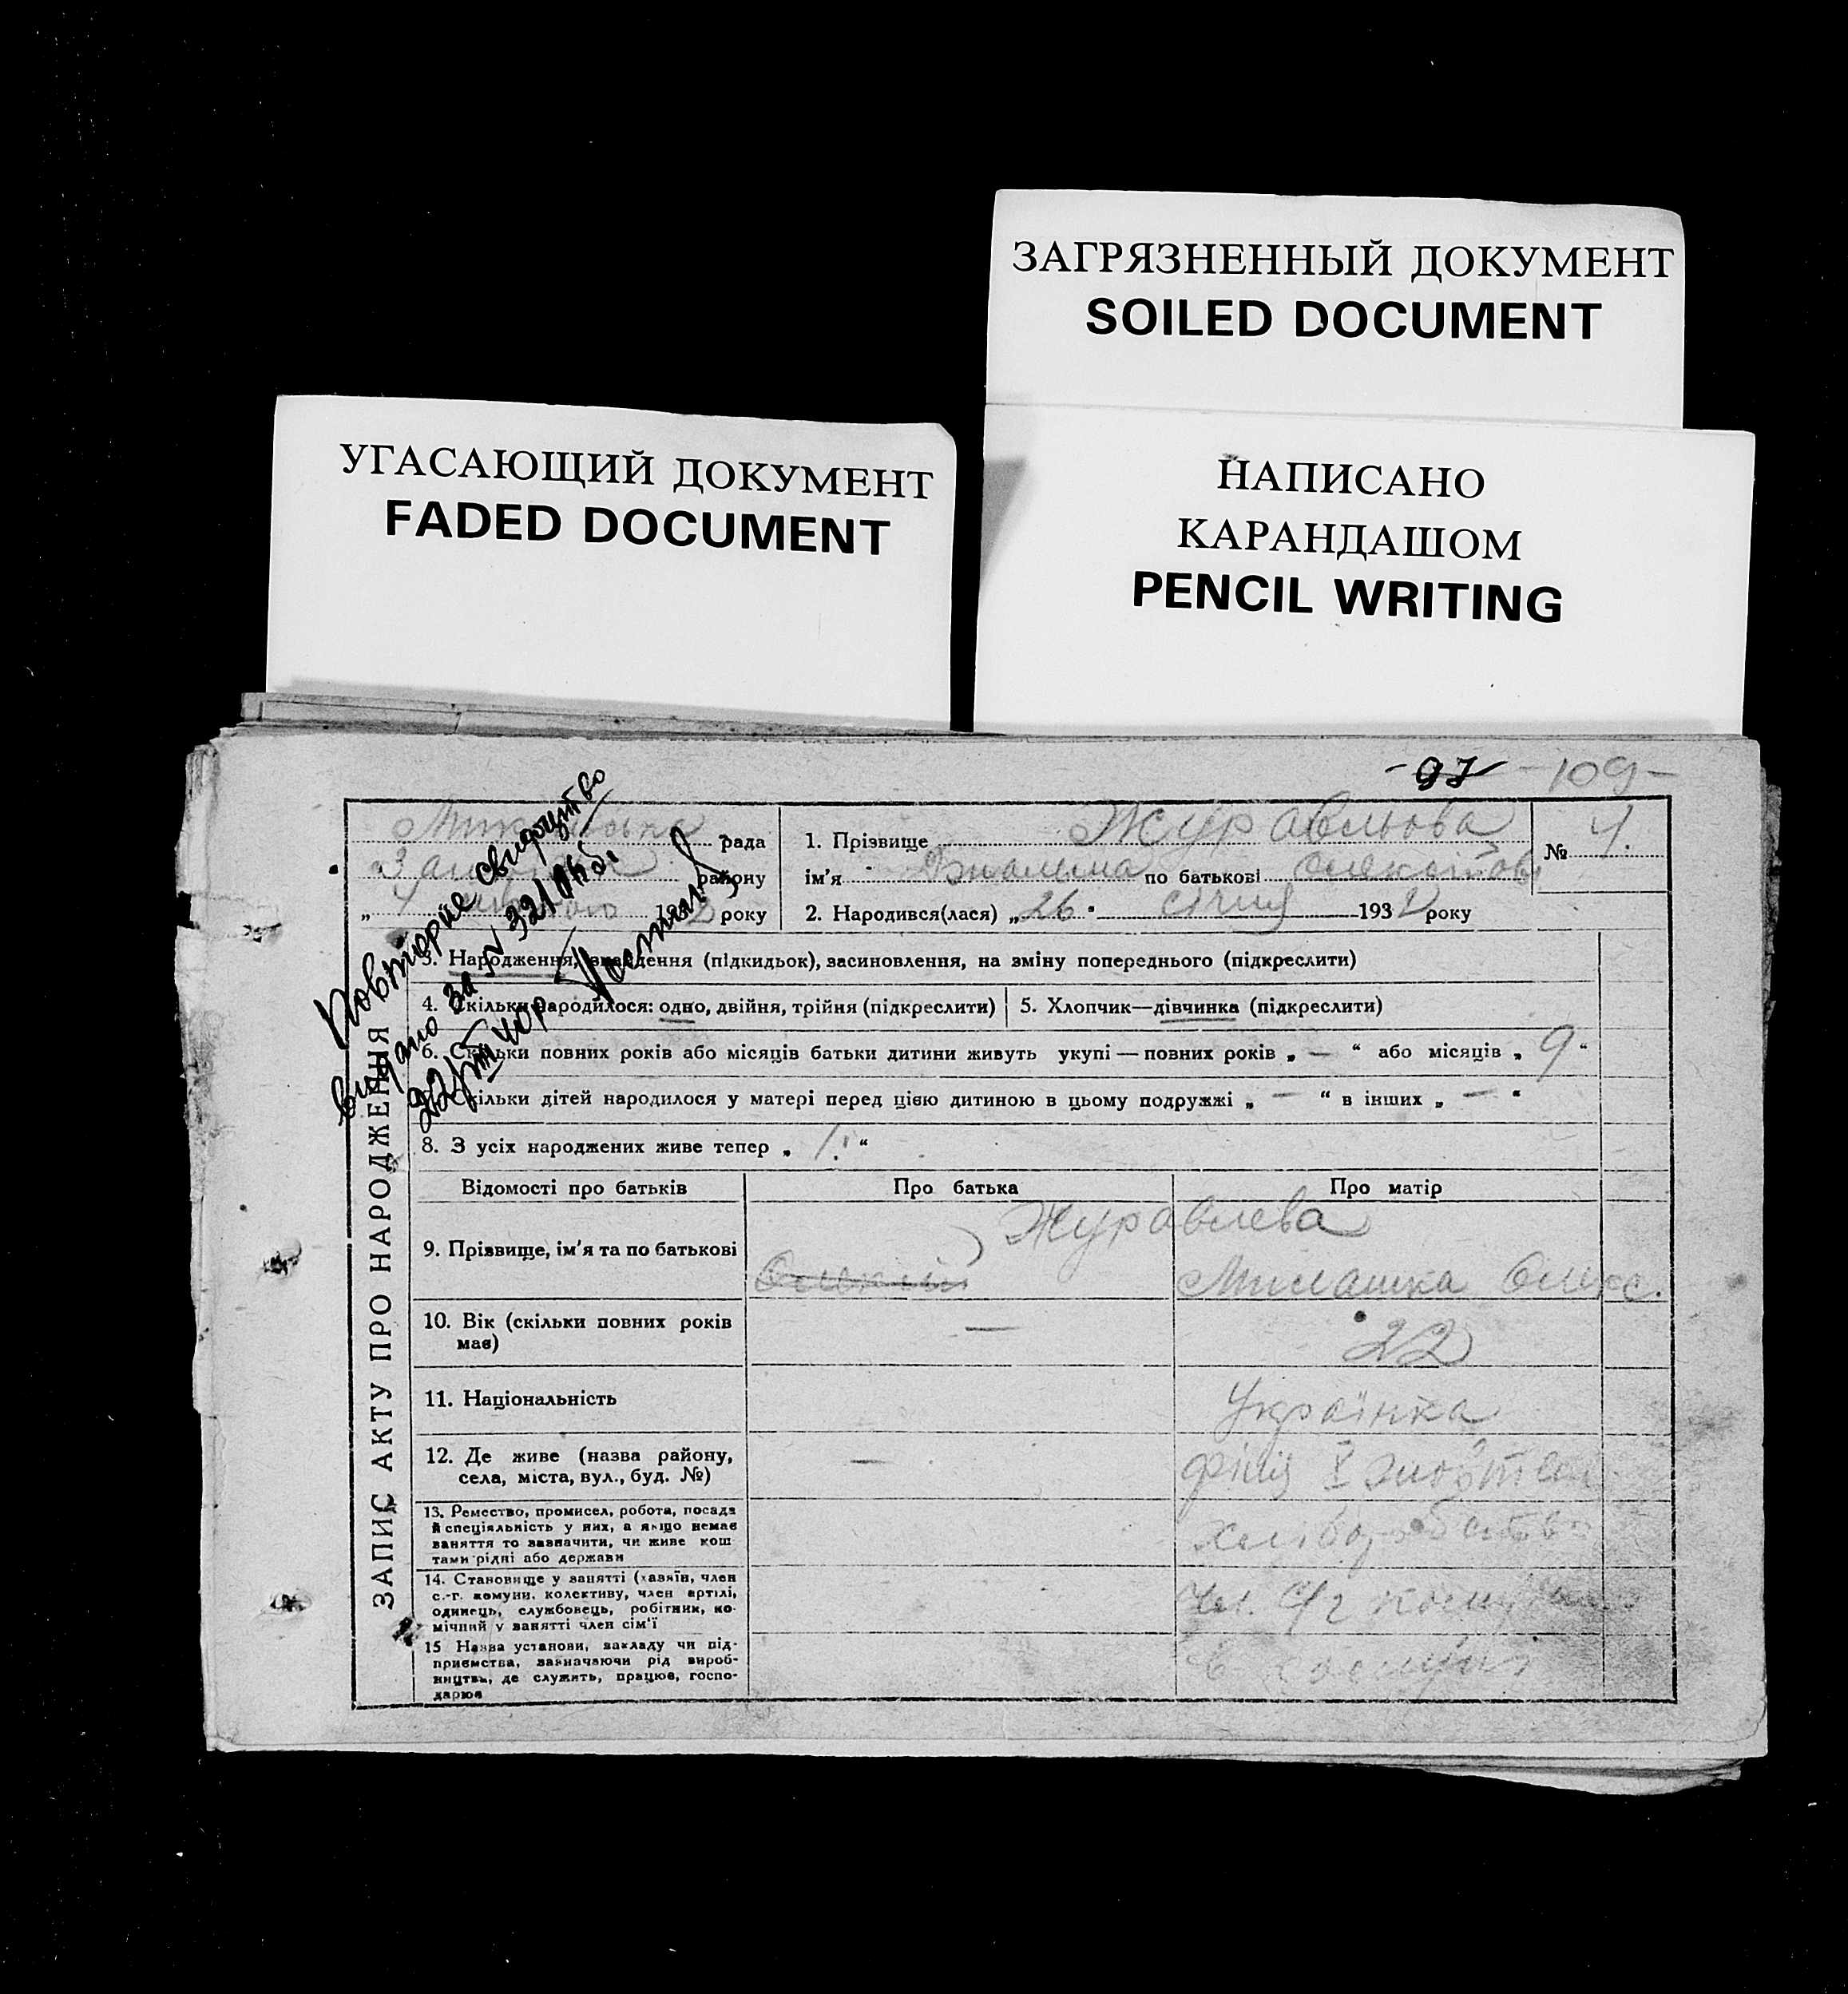 ЗАГРЯЗНЕННЫЙ ДОКУМЕНТ
SOILED DOCUMENT
УГАСАЮЩИЙ ДОКУМЕНТ
FADED DOCUMENT
НАПИСАНО
КАРАНДАШОМ
PENCIL WRITING
-97- -109-
рада
району
„ 4 193 року
Повторне свидоцтво
видано за №
ЗАПИС АКТУ ПРО НАРОДЖЕННЯ
1. Прізвище Журавльова
ім'я по батькові
№ 4.
2. Народився(лася) „26" січня 193 року
3. Народження, знайдення (підкидьок), засиновлення, на зміну попереднього (підкреслити)
4. Скільки народилося: одно, двійня, трійня (підкреслити)
5. Хлопчик—дівчинка (підкреслити)
6. Скільки повних років або місяців батьки дитини живуть укупі — повних років „ — “ або місяців „ 9 “
Скільки дітей народилося у матері перед цією дитиною в цьому подружжі „ — “ в інших „ — “
8. З усіх народжених живе тепер „ 1. “
Відомості про батьків Про батька Про матір
9. Прізвище, ім'я та по батькові
Журавлева
Олексій Милашка Олекс.
10. Вік (скільки повних років
має)
— 22
11. Національність
Українка
12. Де живе (назва району,
села, міста, вул., буд. №)
—
13. Ремесство, промисел, робота, посада
й спеціяльність у них, а якщо немає
заняття то зазначити, чи живе кош
тами рідні або держави
14. Становище у занятті (хазяїн, член
с.-г. комуни, колективу, член артілі,
одинець, службовець, робітник, ко-
мічний у занятті член сім'ї
Чл. с/г
15 Назва установи, закладу чи під-
приємства, зазначаючи рід вироб-
ництва, де служить, працює, госпо-
дарює